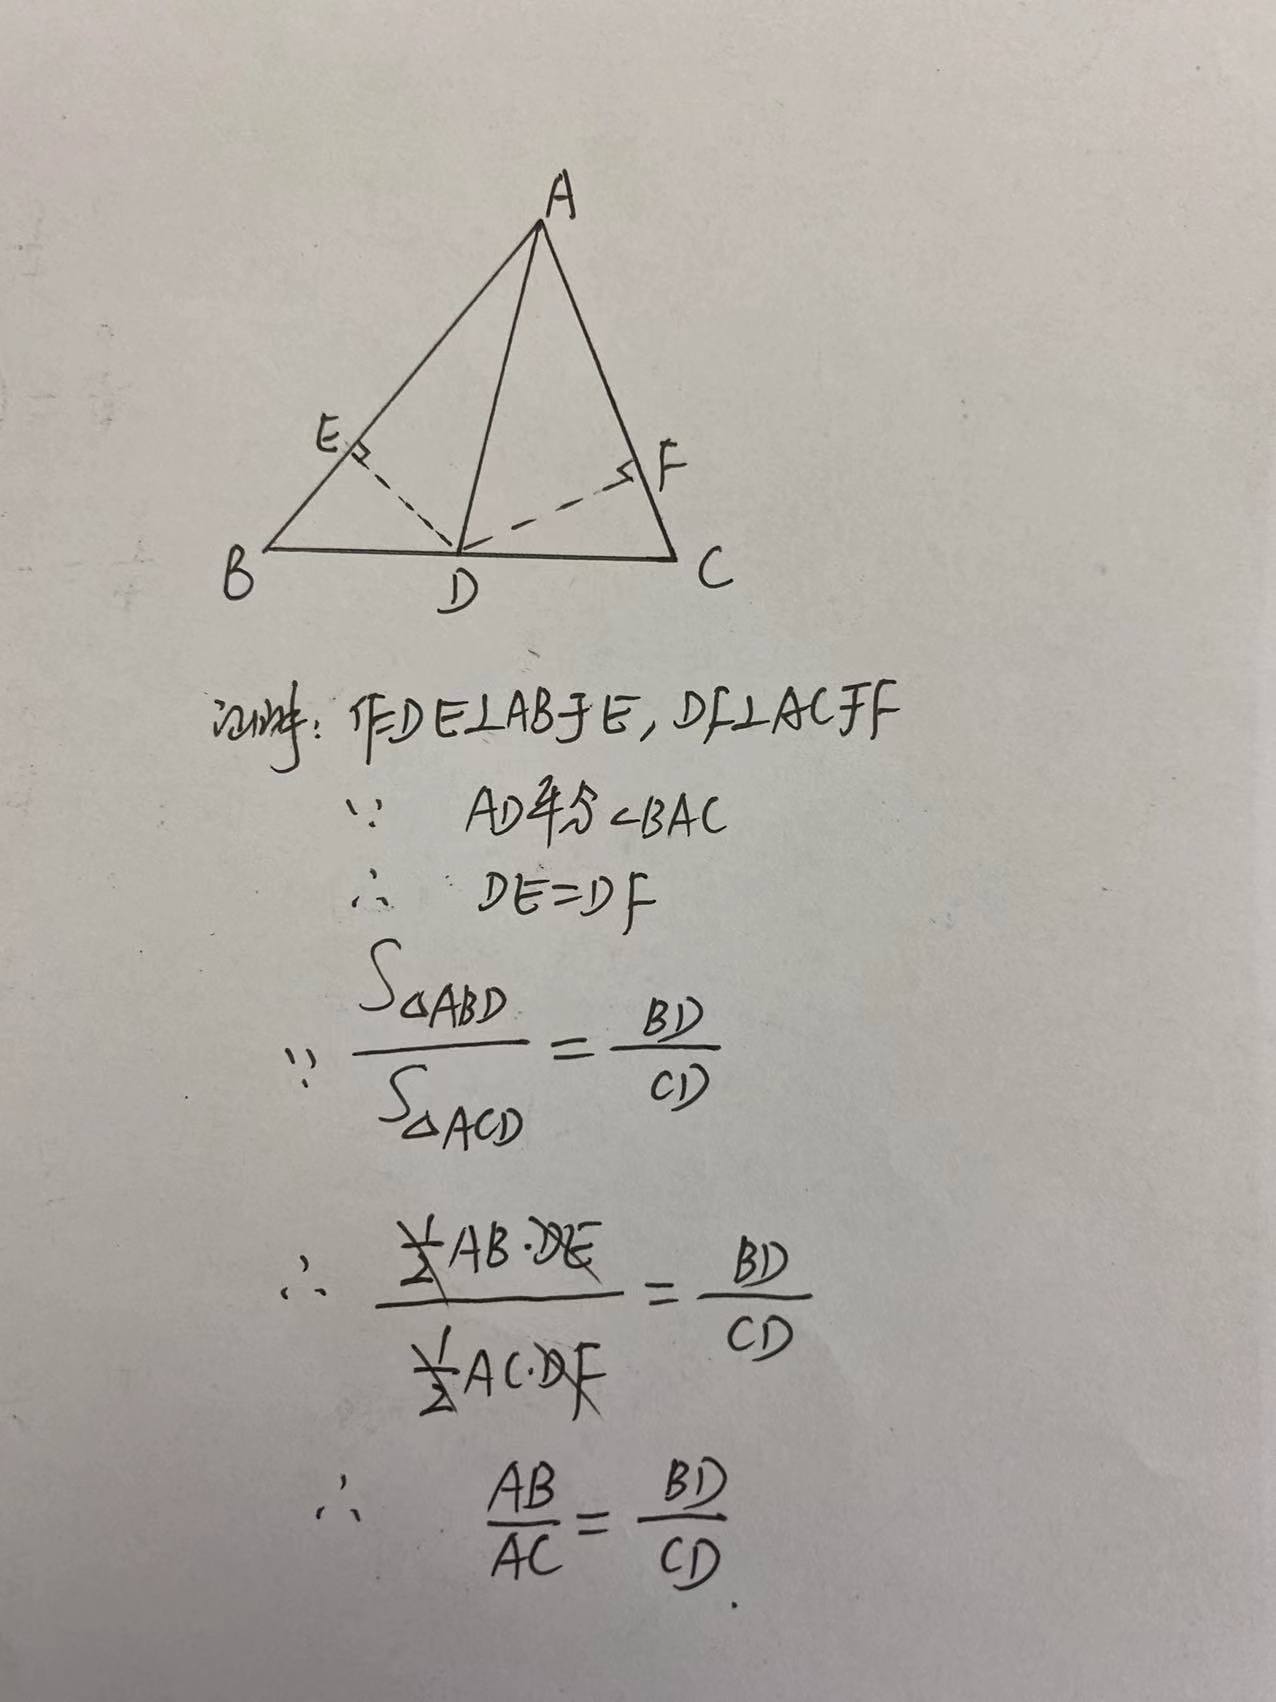 A
E
F
B
D
C
证明: 作DE⊥AB于E, DF⊥AC于F
∵ AD平分∠BAC
∴ DE=DF
∵ S△ABD/S△ACD = BD/CD
∴ ½AB·DE/½AC·DF = BD/CD
∴ AB/AC = BD/CD.